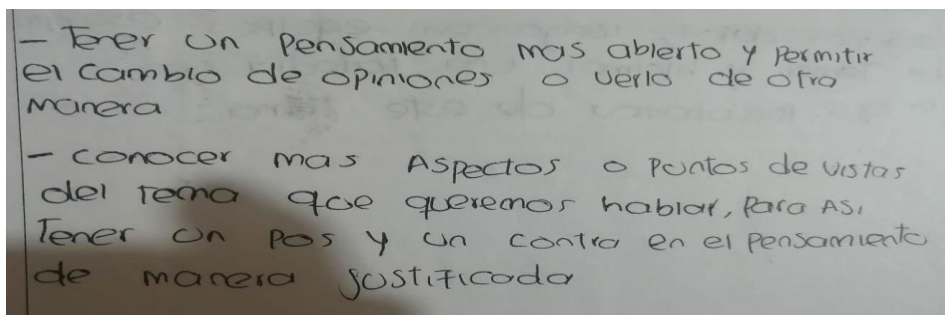 - Tener un Pensamiento mas abierto y Permitir
el cambio de opiniones o verlo de otra
manera
- conocer mas Aspectos o Puntos de vistas
del tema que queremos hablar, Para Asi
Tener un Pos y un contra en el Pensamiento
de manera justificada